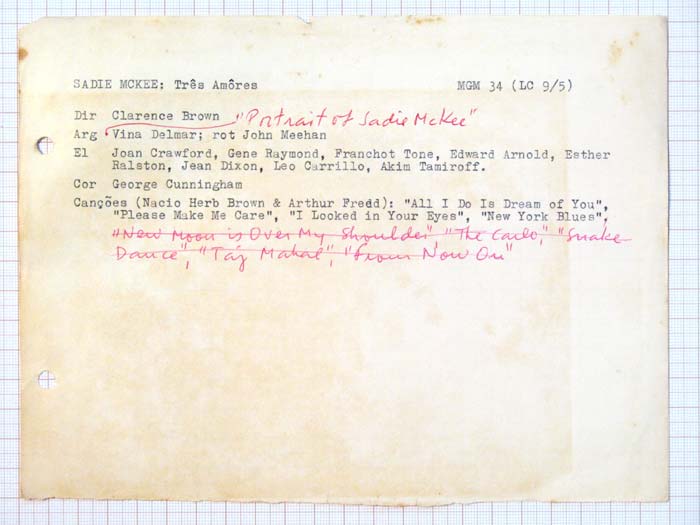 SADIE MCKEE: Três Amôres MGM 34 (LC 9/5)
Dir Clarence Brown "Portrait of Sadie McKee"
Arg Vina Delmar; rot John Meehan
El Joan Crawford, Gene Raymond, Franchot Tone, Edward Arnold, Esther
Ralston, Jean Dixon, Leo Carrillo, Akim Tamiroff.
Cor George Cunningham
Canções (Nacio Herb Brown & Arthur Fredd): "All I Do Is Dream of You",
"Please Make Me Care", "I Looked in Your Eyes", "New York Blues",
"New Moon is Over My Shoulder", "The Carlo", "Snake
Dance", "Taj Mahal", "From Now On"